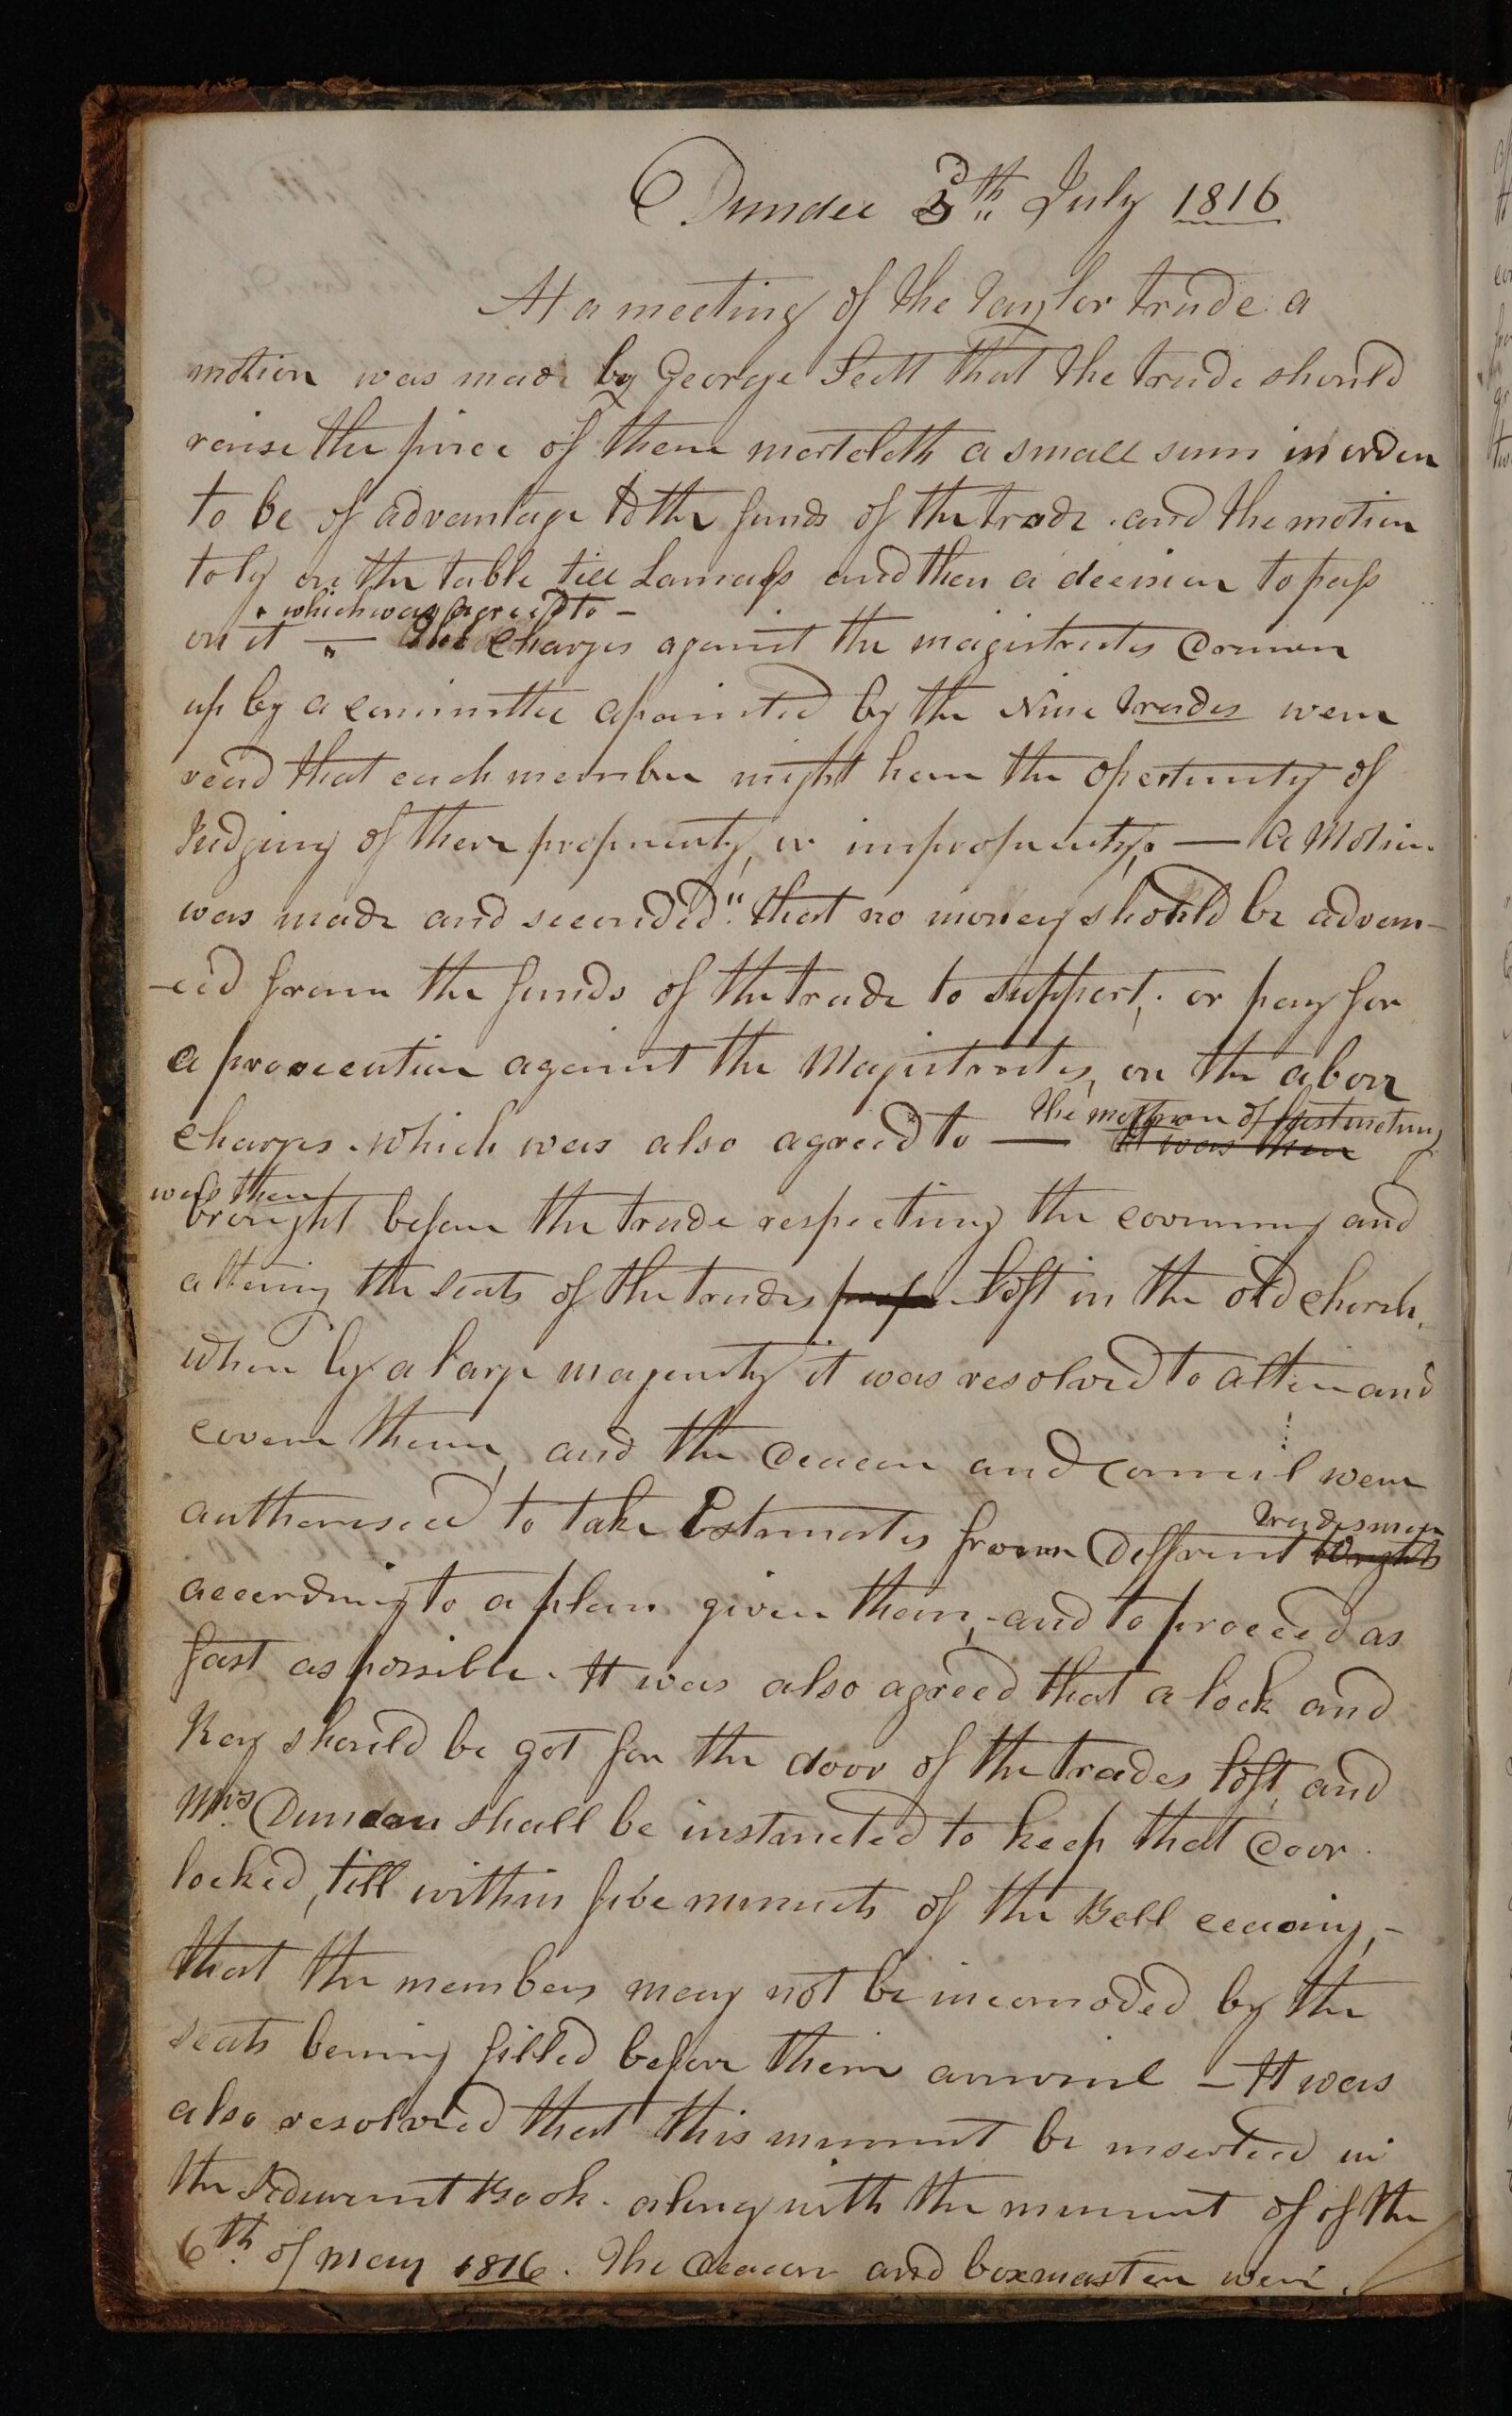 Dundee 3d th July 1816
At a meeting of the Taylor trade a
motion was made by George Scott that the trade should
reise the price of there mortcloth a small sum in order
to be of advantage to the funds of the trade. and the motion
to ly on the table till Lamass and then a decision to pass
which was agreed to –
on it — The Charges against the magistrates Drawn
up by a committee apointed by the Nine trades were
read that each member might have the opertunity of
Judging of there propriety, or impropriety, — A Motion
was made and seconded". that no money should be advan-
-ced from the funds of the trade to support, or pay for
a prosecution against the Magistrates, on the above
the motion of
charges. which was also agreed to — It was then
was then
brought before the trade respecting the covering and
altering the seats of the trades loft in the old church,
when by a large majority it was resolved to alter and
cover them, and the Deacon and Council were
tradesmen
authorised to take Estimates from Diffrent Wrights
according to a plan given them, and to proceed as
fast as possible. It was also agreed that a lock and
Key should be got for the door of the trades loft, and
Mrs Duncan shall be instructed to keep that Door
locked, till within five minuets of the Bell ceasing, –
that the members may not be incomoded by the
seats being filled before their arrival – It was
also resolved that this minuet be inserted in
the Sederunt Book. along with the minuet of of the
6th of May 1816. The Deacon and boxmaster were